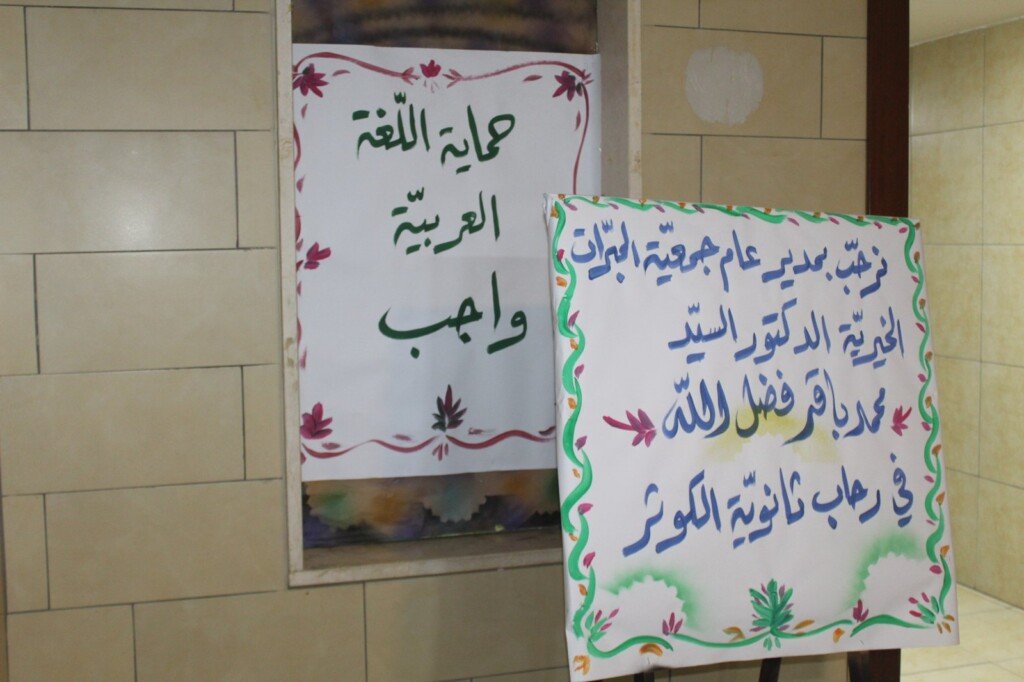 حماية اللّغة
العربيّة
واجب
نرحّب بمدير عام جمعيّة المبرّات
الخيريّة الدكتور السيّد
محمد باقر فضل اللّه
في رحاب ثانويّة الكوثر